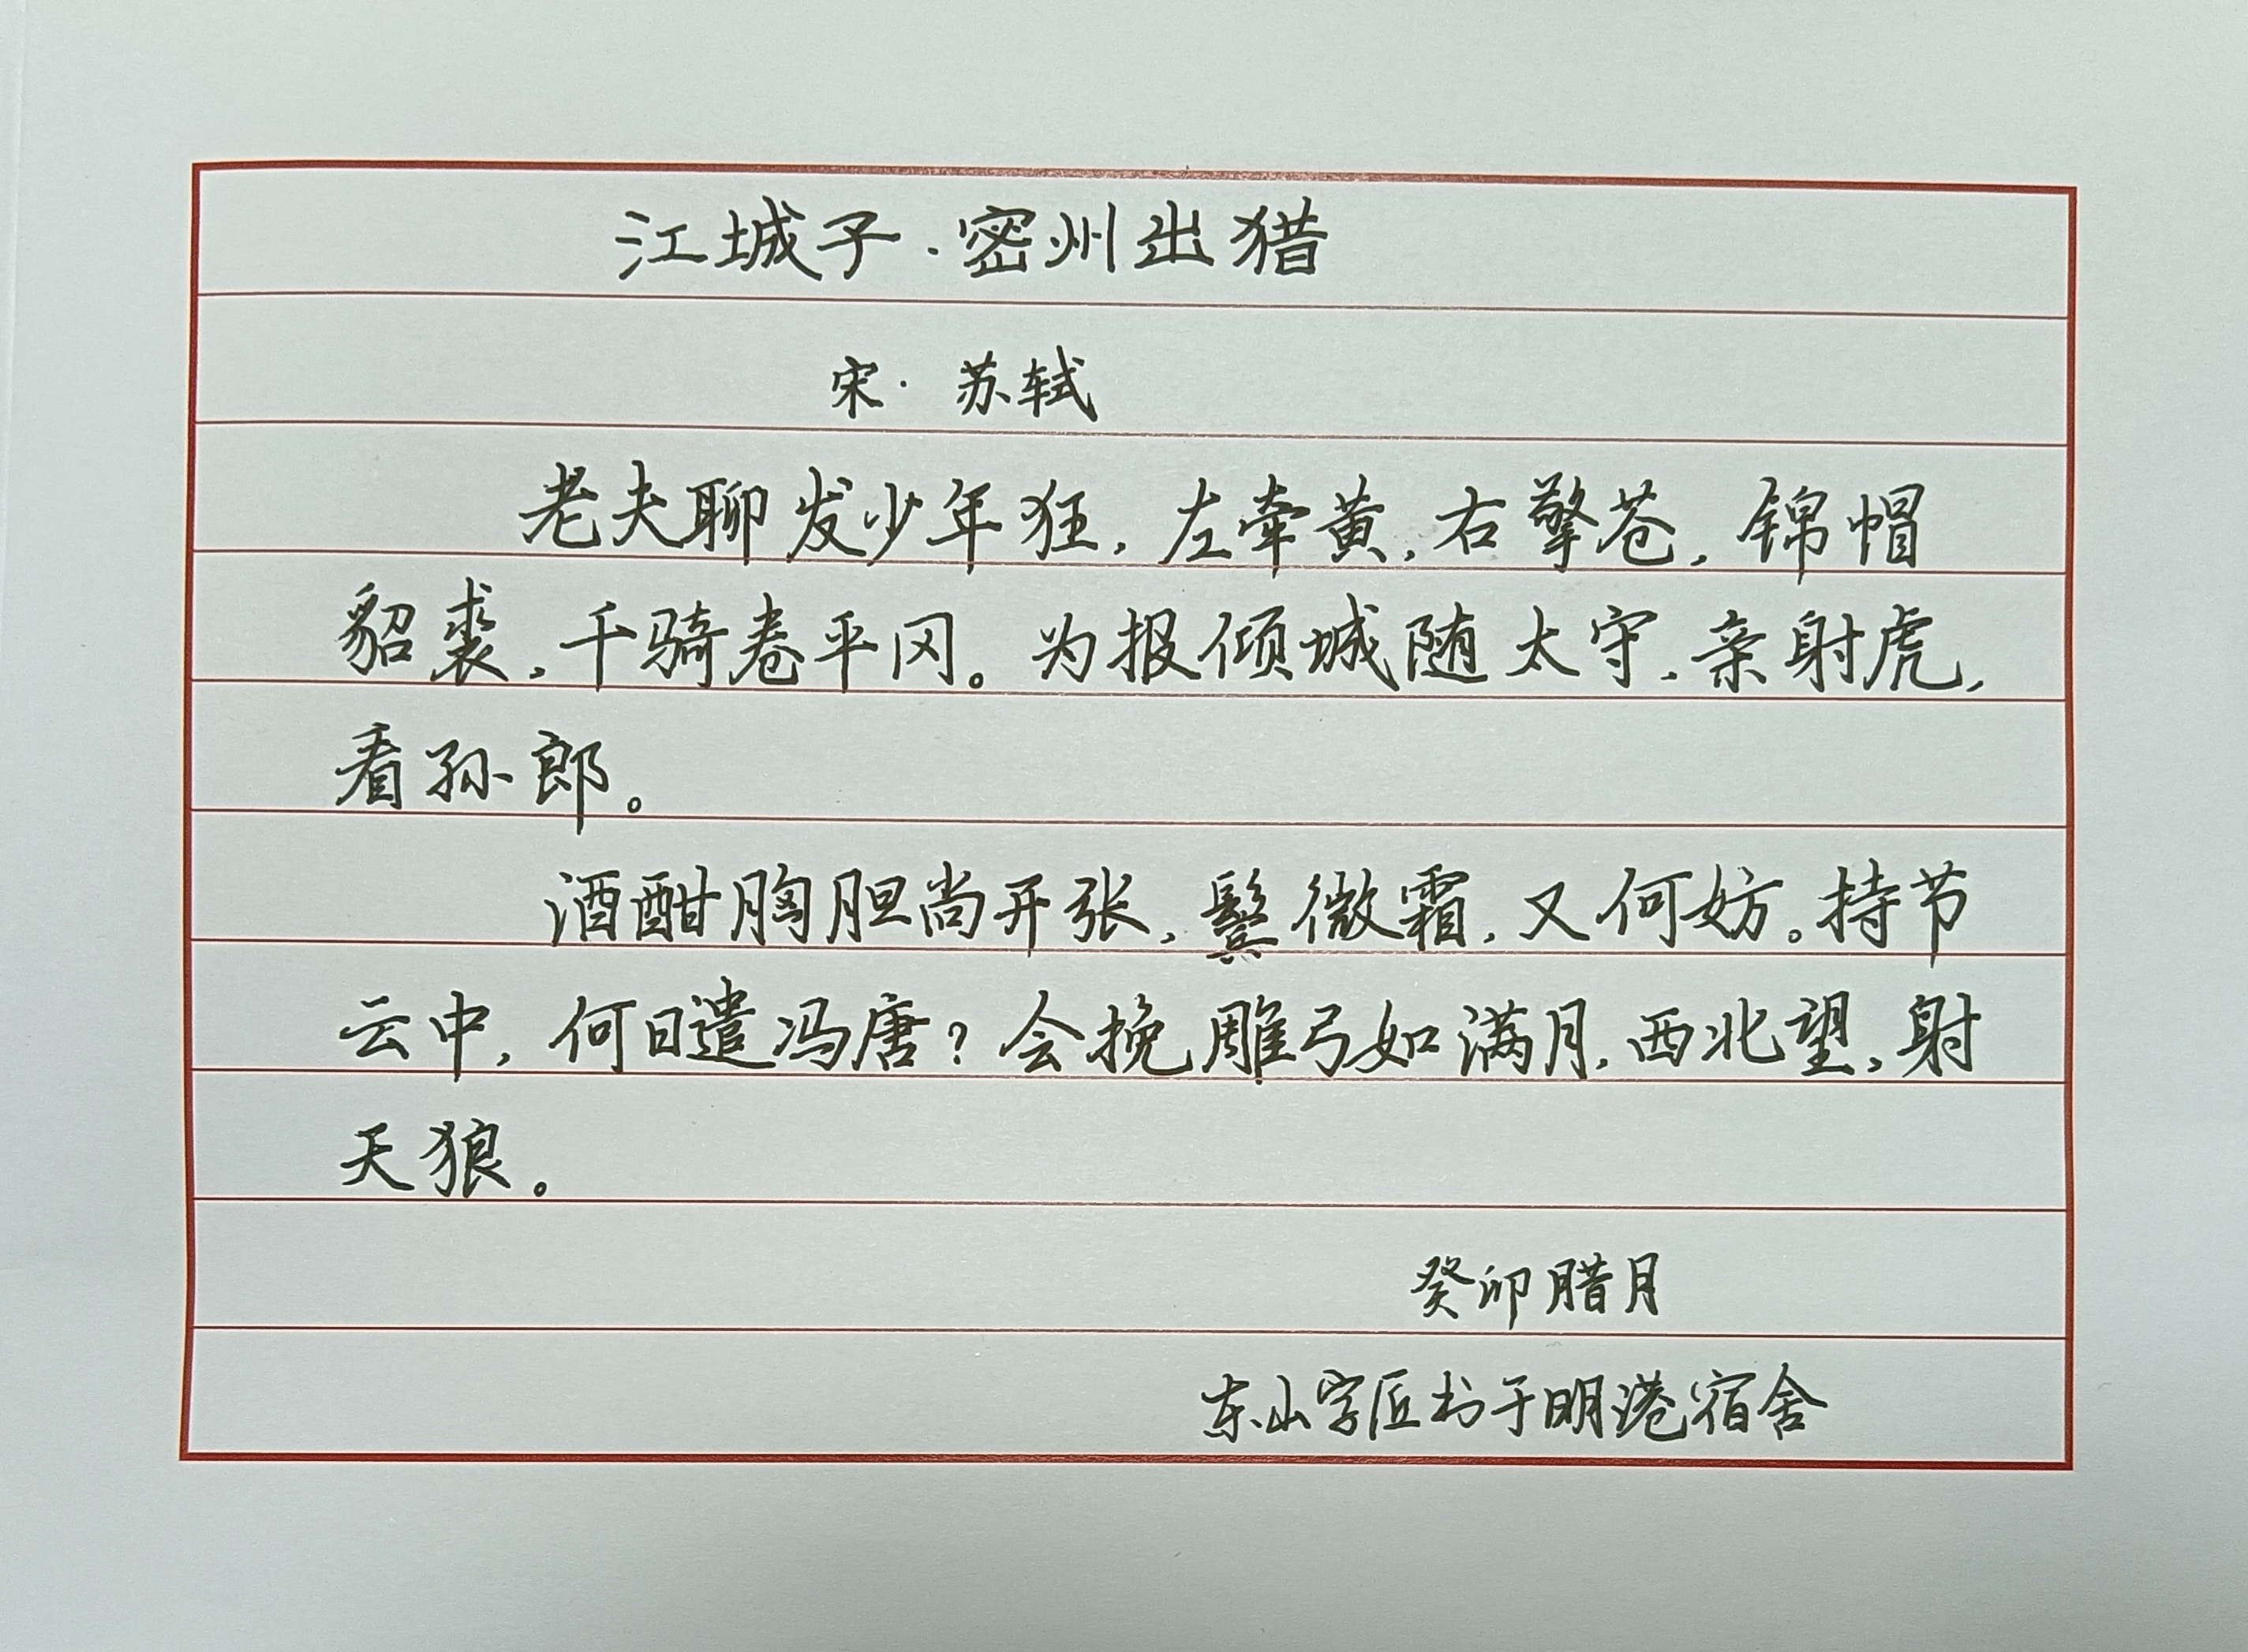 江城子·密州出猎
宋·苏轼
老夫聊发少年狂,左牵黄,右擎苍,锦帽
貂裘,千骑卷平冈。为报倾城随太守,亲射虎,
看孙郎。
酒酣胸胆尚开张,鬓微霜,又何妨。持节
云中,何日遣冯唐?会挽雕弓如满月,西北望,射
天狼。
癸卯腊月
东山字匠书于明港宿舍